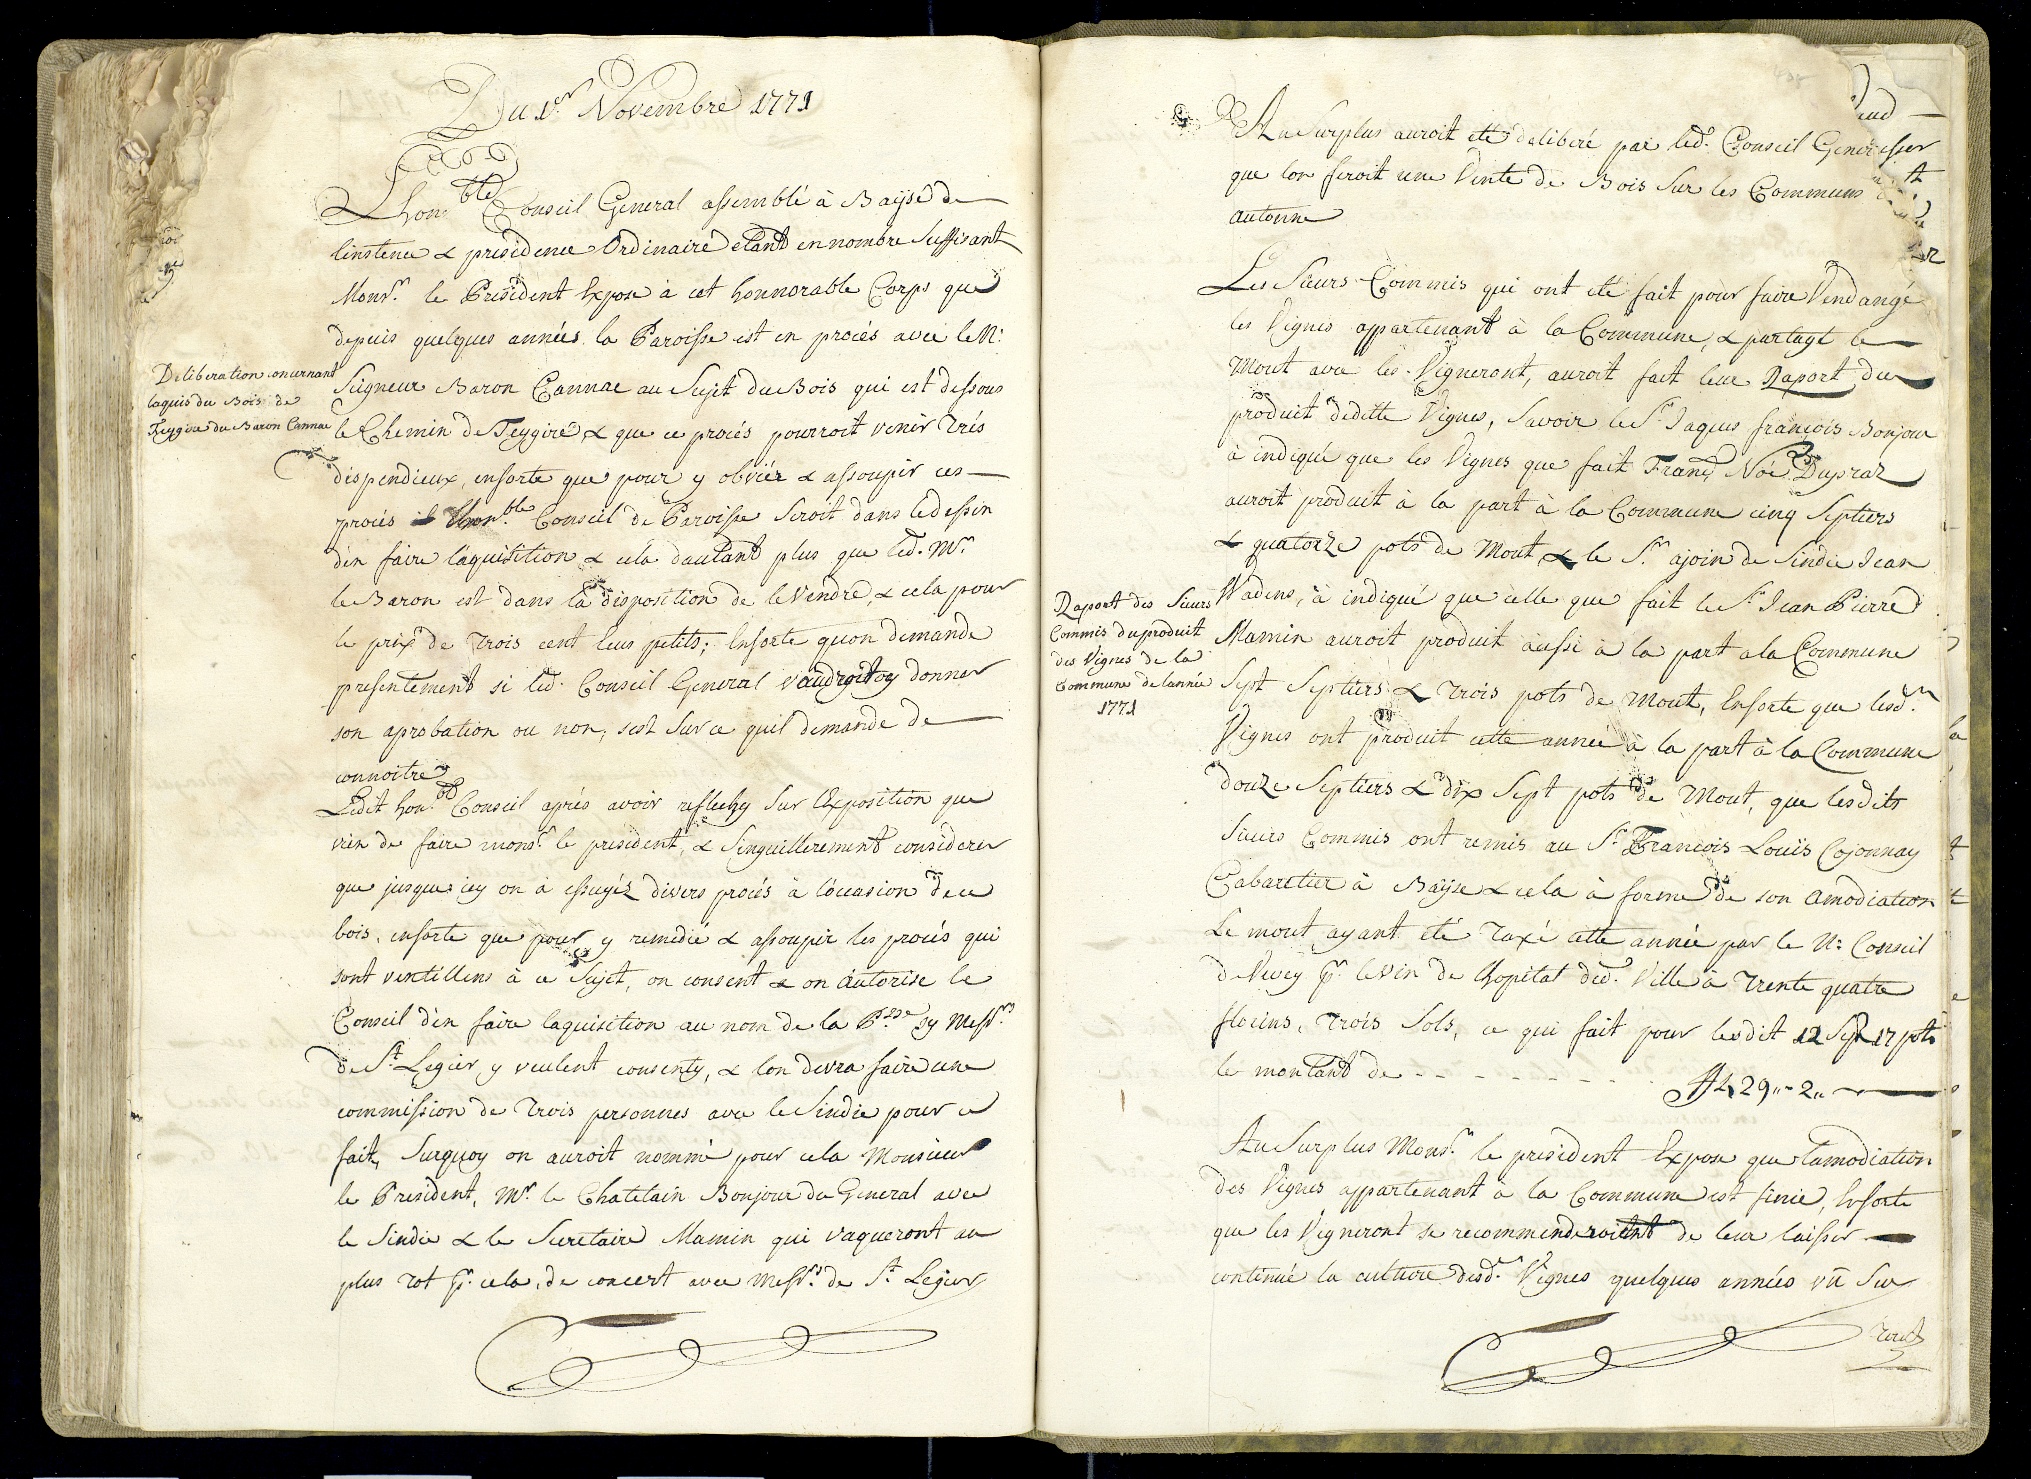 Du 1er Novembre 1771
Lhon.ble Conseil General assemblé à Bayse de
linstence & presidence Ordinaire etant en nombre Suffisant
Monsr. le President Expose à cet honnorable Corps que
depuis quelques années la Paroisse est en procés avec le N:
Seigneur Baron Cannac au Sujet du Bois qui est dessous
le Chemin de Feygire & que ce procés pourroit venir trés
dispendieux, ensorte que pour y obvier & assoupir ces
procés lhon.ble Conseil de Paroisse Seroit dans le dessin
den faire laquisition & cela dautant plus que led. Mr.
le Baron est dans la disposition de le Vendre, & cela pour
le prix de trois cent Ecus petits; Ensorte quon demande
presentement si led. Conseil General vaudroit y donner
son aprobation ou non, sest Sur ce quil demande de
connoitre
Deliberation concernant
laquis du Bois de
Feygire du Baron Cannac
Ledit hon.ble Conseil aprés avoir reflechy Sur lExposition que
vien de faire monsr. le president, & Singuillerement considerer
que jusques icy on à essuyéz divers procés à loccasion de ce
bois, ensorte que pour y remedié & assoupir les procés qui
sont ventillens à ce Sujet, on consent & on autorise le
Conseil den faire laquisition au nom de la P.sse sy Messrs.
de St. Legier y veulent consenty, & lon devra faire une
commission de trois personnes avec le Sindic pour ce
fait, Surquoy on auroit nommé pour cela Monsieur
le President, Mr. le Chatelain Bonjour du General avec
le Sindic & le Secretaire Mamin qui vaqueront au
plus tot pr. cela, de concert avec Messrs. de St. Legier
Au Surplus auroit été deliberé par led. Conseil Gener
que lon feroit une Vente de Bois Sur les Communs
autonne
Les Sieurs Commis qui ont été fait pour faire Vendangé
les Vignes appartenant à la Commune, & partagé le
Mout avec les Vigneront, auroit fait leur Raport du
produit dedittes Vignes, Savoir le Sr. Jaques françois Bonjour
à indiqué que les Vignes que fait Franç. Noé Dupraz
auroit produit à la part à la Commune cinq Septiers
& quatorze pots de Mout & le Sr. ajoin de Sindic Jean
Wadens, à indiqué que celle que fait le Sr. Jean Pierre
Mamin auroit produit aussi à la part à la Commune
Sept Septiers & trois pots de Mout, Ensorte que lesd.
Vignes ont produit cette année à la part à la Commune
douze Septiers & dix Sept pots de Mout, que lesdits
Sieurs Commis ont remis au Sr. Francois Louïs Cojonnay
Cabaretier à Bayse & cela à forme de son amodiation
Le mout ayant été taxé cette année par le N: Conseil
de Vevey pr. le vin de lhopital dud. Ville à trente quatre
florins, trois Sols, ce qui fait pour lesdit 12 Sep. 17 pots
le montant de - - - - - - ff 429 „ 2 „
Raport des Sieurs
Commis du produit
des Vignes de la
Commune de lannée
1771
Au Surplus Monsr. le president Expose que lamodiation
des Vignes appartenant à la Commune est finie, Ensorte
que les Vigneront se recommenderoient de leur laisser
continué la culture desd. Vignes quelques années vû Sur
tout